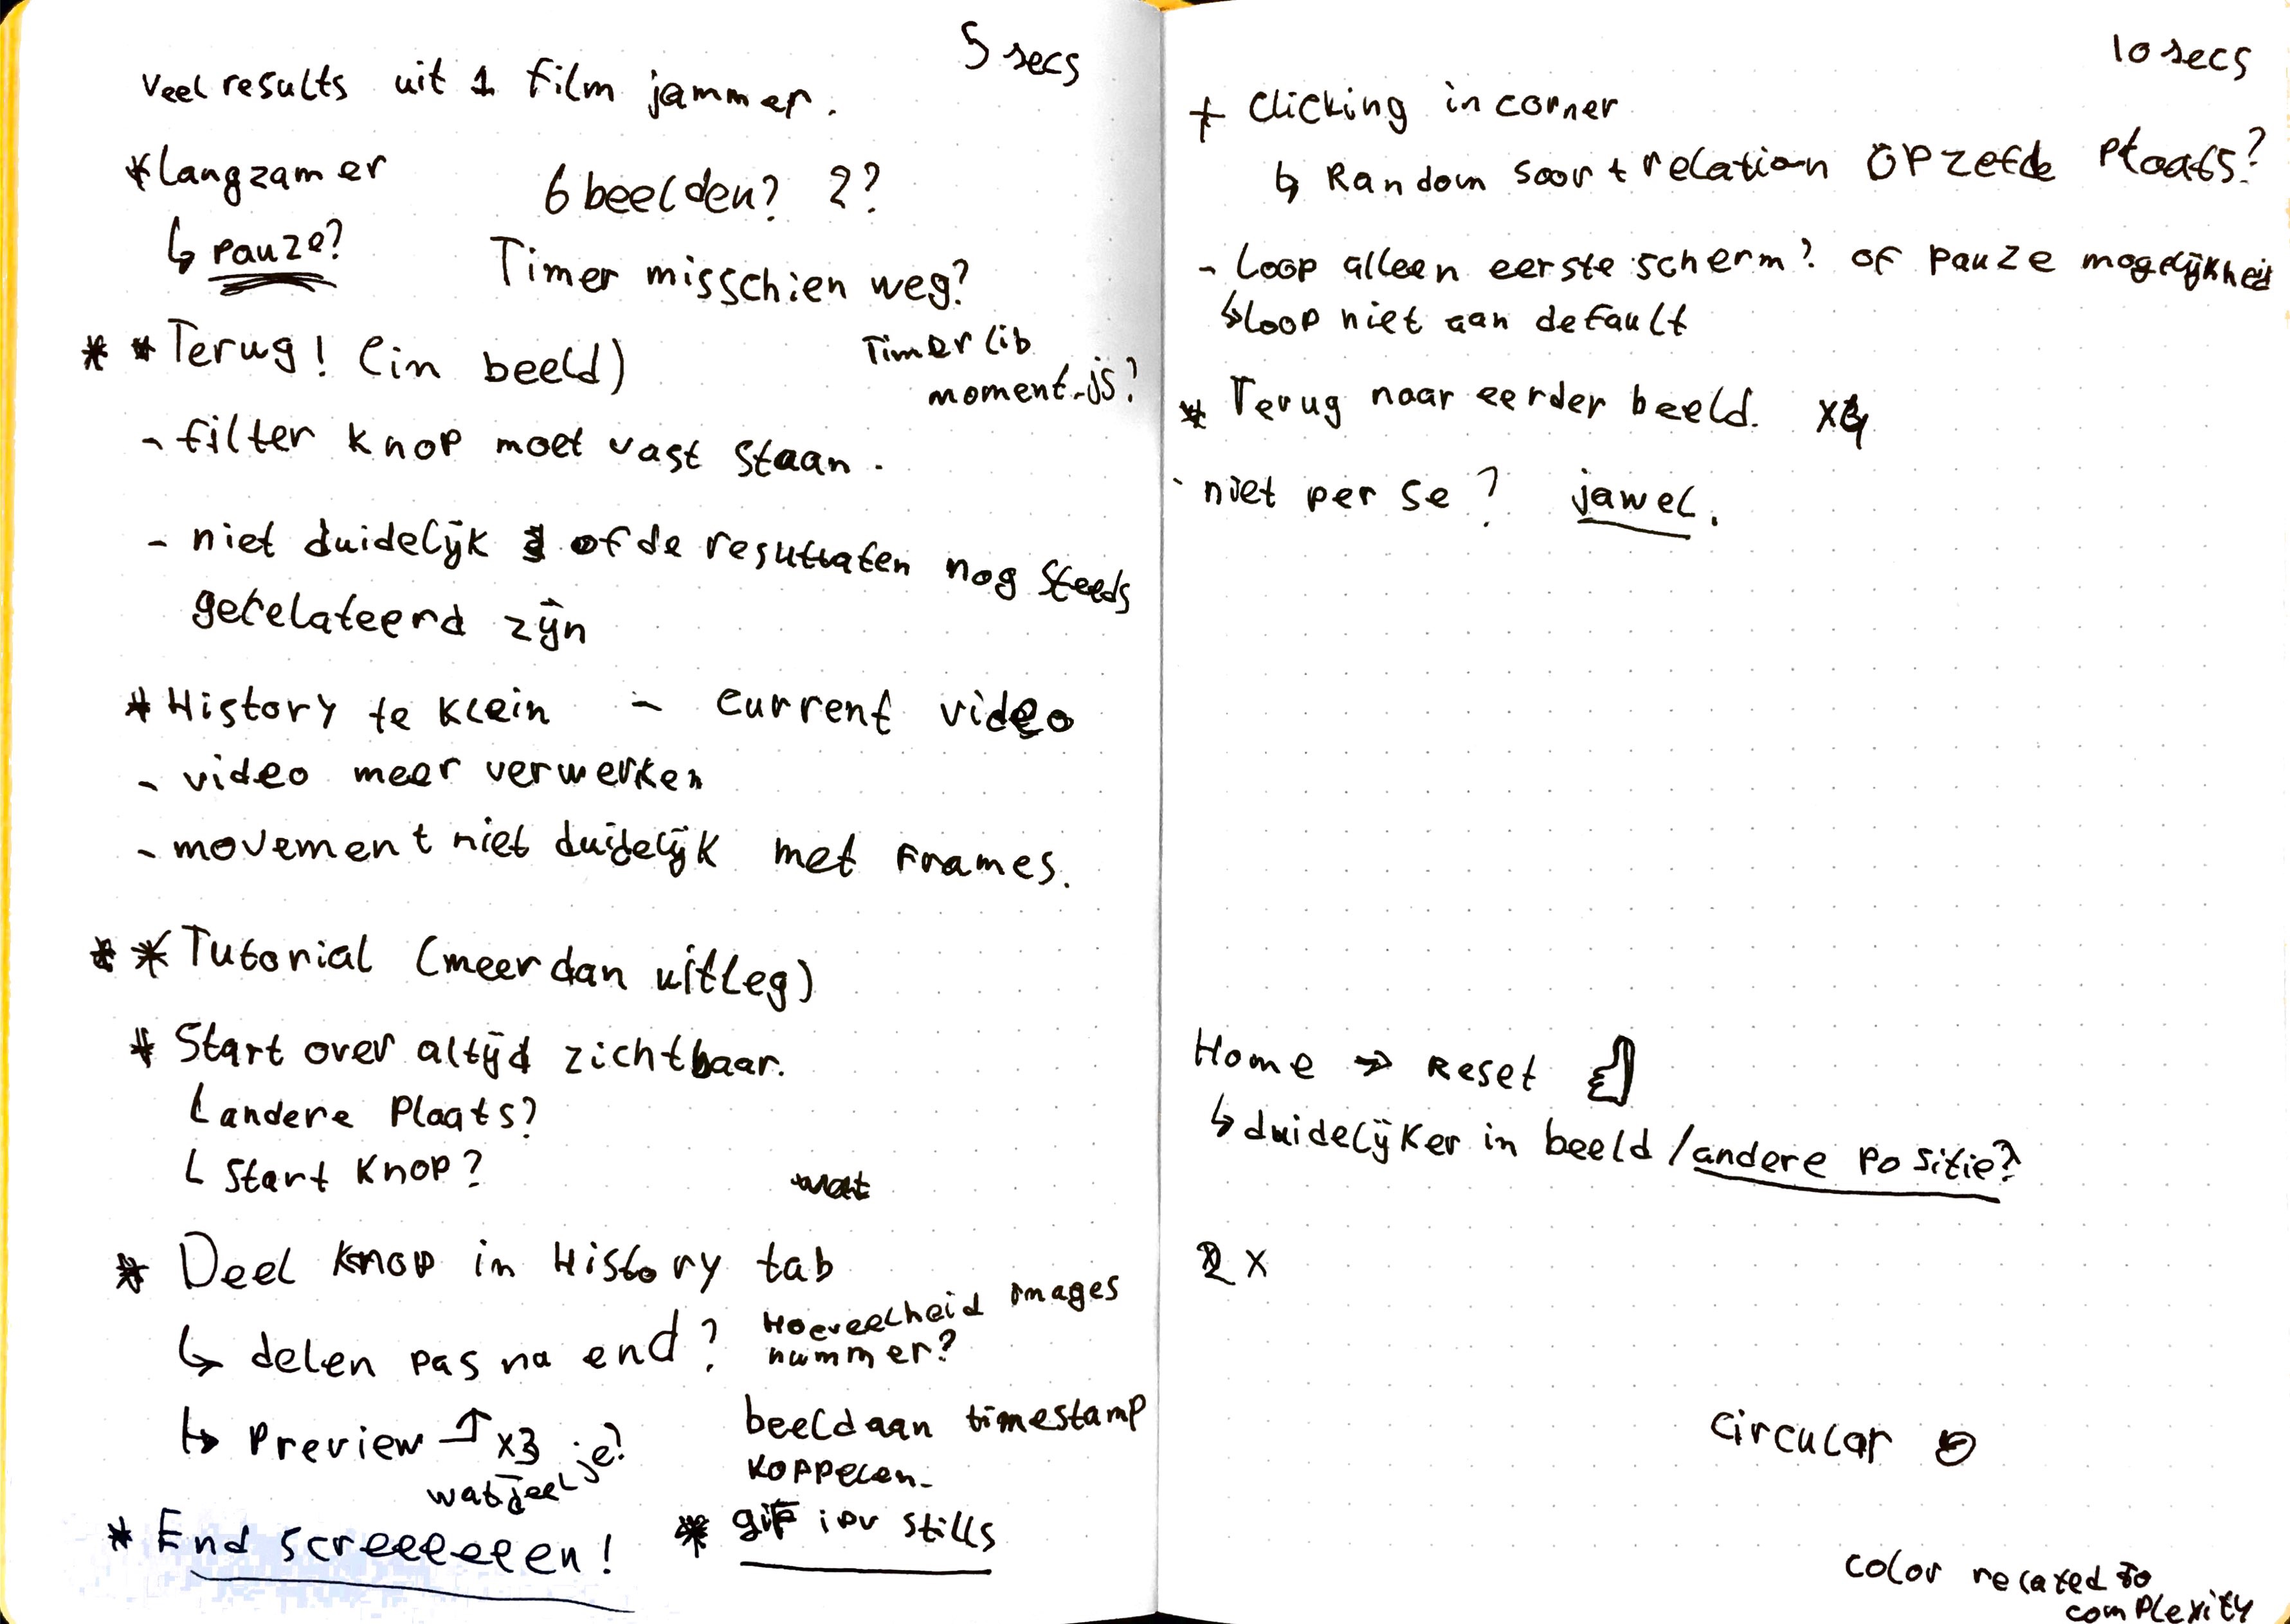 5 secs
veel results uit 1 film jammer.
* langzamer
↳ pauze?
6 beelden? 2?
Timer misschien weg?
* * Terug! (in beeld)
Timer lib
moment.js?
- filter knop moet vast staan.
- niet duidelijk of de resultaten nog steeds
gerelateerd zijn
* History te klein - current video
- video meer verwerken
- movement niet duidelijk met frames.
* * Tutorial (meer dan uitleg)
* Start over altijd zichtbaar.
L andere plaats?
L Start knop?
wat
* Deel knop in History tab
↳ delen pas na end?
Hoeveelheid images
nummer?
↳ Preview ↑ x3
wat deel je?
beeld aan timestamp
koppelen.
* End screeeeeen!
* gif ipv stills
10 secs
+ clicking in corner
↳ Random soort relation op zefde plaats?
- Loop alleen eerste scherm? of pauze mogelijkheid
↳ loop niet aan default
* Terug naar eerder beeld. x4
- niet per se? jawel.
Home → Reset
↳ duidelijker in beeld / andere positie?
2 x
circular
color related to
complexity